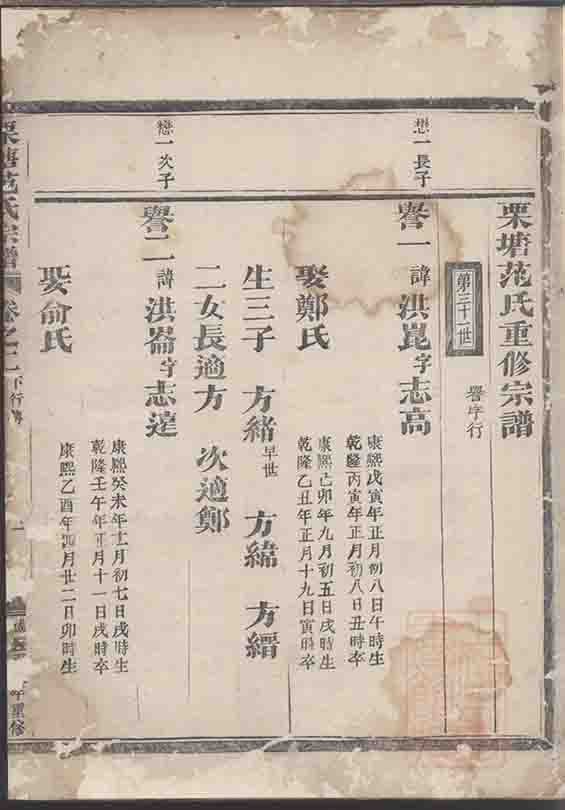 栗塘范氏重修宗譜
第三十一世
譽字行
懋一長子
譽一 諱洪崑字志高
康熙戊寅年正月初八日午時生
乾隆丙寅年正月初八日丑時卒
娶鄭氏
康熙己卯年九月初五日戌時生
乾隆乙丑年正月十九日寅時卒
生三子 方緒早世 方緯 方縉
二女長適方 次適鄭
懋一次子
譽二 諱洪崙字志達
康熙癸未年十一月初七日戌時生
乾隆壬午年正月十一日戌時卒
娶俞氏
康熙乙酉年四月廿二日卯時生
栗塘范氏宗譜 卷之二 下行傳